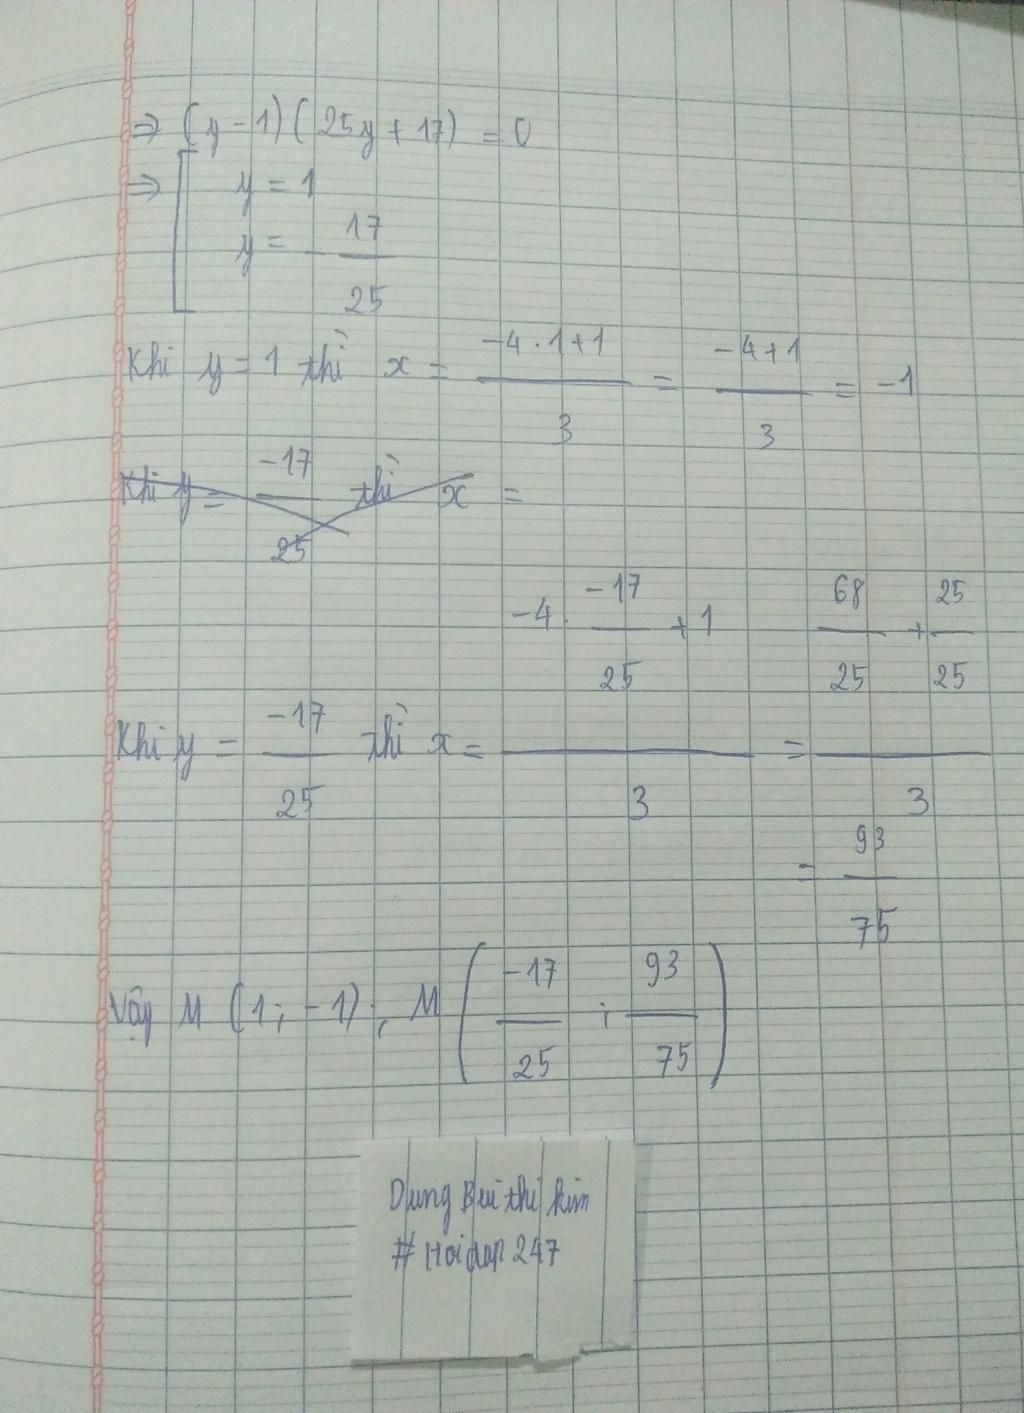 ⇒ (y - 1)(25y + 17) = 0
⇒ [ y = 1
y = - 17/25
Khi y = 1 thì x = (-4 . 1 + 1)/3 = (-4 + 1)/3 = -1
Khi y = -17/25 thì x =
Khi y = -17/25 thì x = (-4 . -17/25 + 1)/3 = (68/25 + 25/25)/3
= 93/75
Vậy M (1 ; -1) ; M (-17/25 ; 93/75)
Dung Bui thi kim
# Hoidap 247